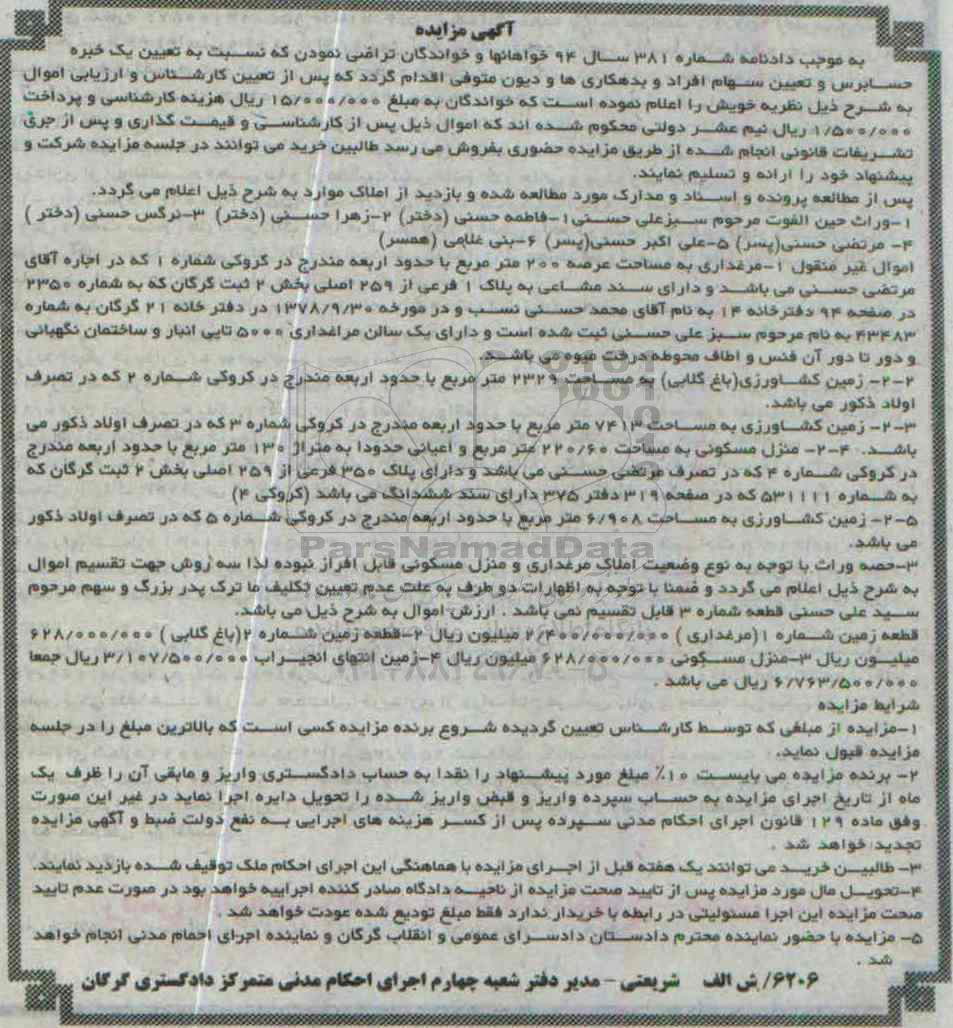 آگهی مزایده
به موجب دادنامه شماره ۳۸۱ سال ۹۴ خواهانها و خواندگان تراضی نمودن که نسبت به تعیین یک خبره
حسابرس و تعیین سهام افراد و بدهکاری ها و دیون متوفی اقدام گردد که پس از تعیین کارشناس و ارزیابی اموال
به شرح ذیل نظریه خویش را اعلام نموده است که خواندگان به مبلغ ۱۵/۰۰۰/۰۰۰ ریال هزینه کارشناسی و پرداخت
۱/۵۰۰/۰۰۰ ریال نیم عشر دولتی محکوم شده اند که اموال ذیل پس از کارشناسی و قیمت گذاری و پس از جری
تشریفات قانونی انجام شده از طریق مزایده حضوری بفروش می رسد طالبین خرید می توانند در جلسه مزایده شرکت و
پیشنهاد خود را ارائه و تسلیم نمایند.
پس از مطالعه پرونده و اسناد و مدارک مورد مطالعه شده و بازدید از املاک موارد به شرح ذیل اعلام می گردد.
۱-وراث حین الفوت مرحوم سبزعلی حسنی۱-فاطمه حسنی (دختر) ۲-زهرا حسنی (دختر) ۳-نرگس حسنی (دختر )
۴- مرتضی حسنی(پسر) ۵-علی اکبر حسنی(پسر) ۶-بنی غلامی (همسر)
اموال غیر منقول ۱-مرغداری به مساحت عرصه ۲۰۰ متر مربع با حدود اربعه مندرج در کروکی شماره ۱ که در اجاره آقای
مرتضی حسنی می باشد و دارای سند مشاعی به پلاک ۱ فرعی از ۲۵۹ اصلی بخش ۲ ثبت گرگان که به شماره ۲۳۵۰
در صفحه ۹۴ دفترخانه ۱۴ به نام آقای محمد حسنی نسب و در مورخه ۱۳۷۸/۹/۳۰ در دفتر خانه ۲۱ گرگان به شماره
۴۳۴۸۳ به نام مرحوم سبز علی حسنی ثبت شده است و دارای یک سالن مراغداری ۵۰۰۰ تایی انبار و ساختمان نگهبانی
و دور تا دور آن فنس و اطاف محوطه درخت میوه می باشد.
۲-۲- زمین کشاورزی(باغ گلابی) به مساحت ۲۳۲۹ متر مربع با حدود اربعه مندرج در کروکی شماره ۲ که در تصرف
اولاد ذکور می باشد.
۲-۳- زمین کشاورزی به مساحت ۷۴۱۳ متر مربع با حدود اربعه مندرج در کروکی شماره ۳ که در تصرف اولاد ذکور می
باشد. ۲-۴- منزل مسکونی به مساحت ۲۲۰/۶۰ متر مربع و اعیانی حدودا به متراژ ۱۳۰ متر مربع با حدود اربعه مندرج
در کروکی شماره ۴ که در تصرف مرتضی حسنی می باشد و دارای پلاک ۳۵۰ فرعی از ۲۵۹ اصلی بخش ۲ ثبت گرگان که
به شماره ۵۳۱۱۱۱ که در صفحه ۳۱۹ دفتر ۳۷۵ دارای سند ششدانگ می باشد (کروکی ۴)
۲-۵- زمین کشاورزی به مساحت ۶/۹۰۸ متر مربع با حدود اربعه مندرج در کروکی شماره ۵ که در تصرف اولاد ذکور
می باشد.
ParsNamadData
۳-حصه وراث با توجه به نوع وضعیت املاک مرغداری و منزل مسکونی قابل افراز نبوده لذا سه روش جهت تقسیم اموال
به شرح ذیل اعلام می گردد و ضمنا با توجه به اظهارات دو طرف به علت عدم تعیین تکلیف ما ترک پدر بزرگ و سهم مرحوم
سید علی حسنی قطعه شماره ۳ قابل تقسیم نمی باشد . ارزش اموال به شرح ذیل می باشد.
قطعه زمین شماره ۱(مرغداری ) ۲/۴۰۰/۰۰۰/۰۰۰ میلیون ریال ۲-قطعه زمین شماره ۲(باغ گلابی ) ۶۲۸/۰۰۰/۰۰۰
میلیون ریال ۳-منزل مسکونی ۶۲۸/۰۰۰/۰۰۰ میلیون ریال ۴-زمین انتهای انجیراب ۳/۱۰۷/۵۰۰/۰۰۰ ریال جمعا
۶/۷۶۳/۵۰۰/۰۰۰ ریال می باشد .
شرایط مزایده
۱-مزایده از مبلغی که توسط کارشناس تعیین گردیده شروع برنده مزایده کسی است که بالاترین مبلغ را در جلسه
مزایده قبول نماید.
۲- برنده مزایده می بایست ۱۰٪ مبلغ مورد پیشنهاد را نقدا به حساب دادگستری واریز و مابقی آن را ظرف یک
ماه از تاریخ اجرای مزایده به حساب سپرده واریز و قبض واریز شده را تحویل دایره اجرا نماید در غیر این صورت
وفق ماده ۱۲۹ قانون اجرای احکام مدنی سپرده پس از کسر هزینه های اجرایی به نفع دولت ضبط و آگهی مزایده
تجدید خواهد شد .
۳- طالبین خرید می توانند یک هفته قبل از اجرای مزایده با هماهنگی این اجرای احکام ملک توقیف شده بازدید نمایند.
۴-تحویل مال مورد مزایده پس از تایید صحت مزایده از ناحیه دادگاه صادر کننده اجراییه خواهد بود در صورت عدم تایید
صحت مزایده این اجرا مسئولیتی در رابطه با خریدار ندارد فقط مبلغ تودیع شده عودت خواهد شد .
۵- مزایده با حضور نماینده محترم دادستان دادسرای عمومی و انقلاب گرگان و نماینده اجرای احمام مدنی انجام خواهد
شد .
۶۲۰۶/ ش الف شریعتی - مدیر دفتر شعبه چهارم اجرای احکام مدنی متمرکز دادگستری گرگان